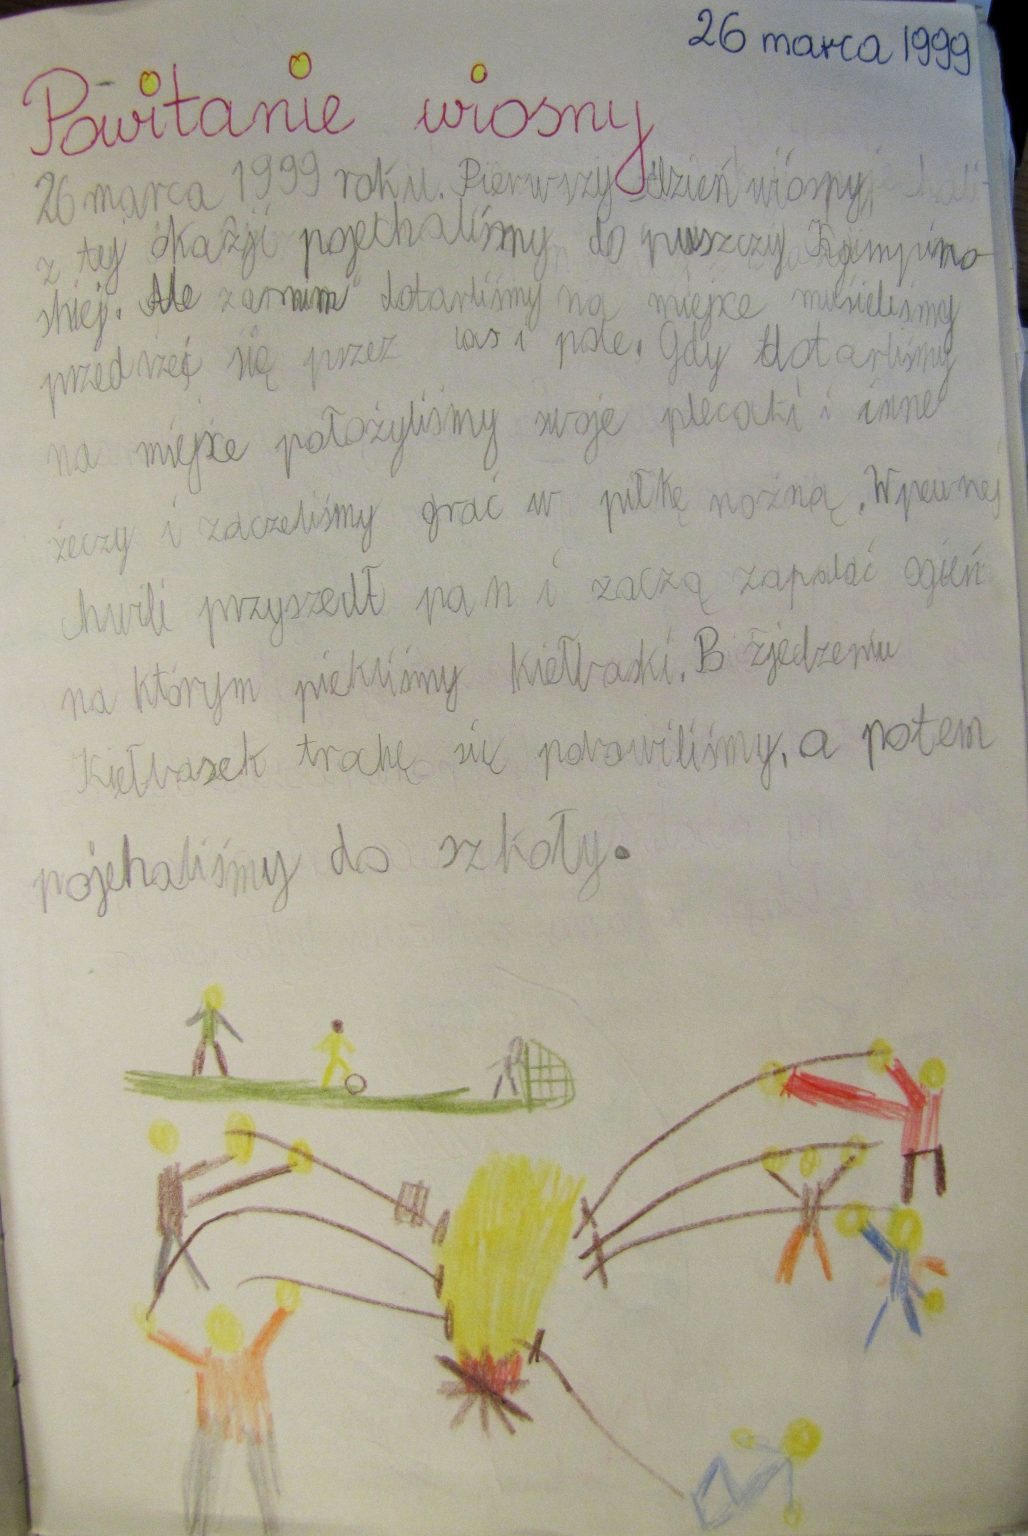 26 marca 1999
Powitanie wiosny
26 marca 1999 roku. Pierwszy dzień wiosny,
z tej okazji pojechaliśmy do puszczy Kampino-
skiej. Ale zanim dotarliśmy na miejce musieliśmy
przedrzeć się przez las i pole. Gdy dotarliśmy
na miejce położyliśmy swoje plecaki i inne
żeczy i zaczeliśmy grać w piłkę nożną. W pewnej
chwili przyszedł pan i zaczą zapalać ogień
na którym piekliśmy kiełbaski. Po zjedzeniu
kiełbasek trohę się pobawiliśmy, a potem
pojehaliśmy do szkoły.